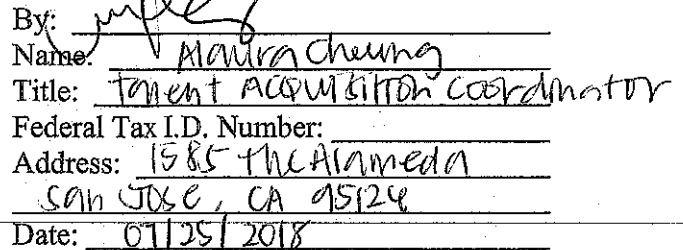 By:
Name: Maura Cheung
Title: Talent Acquisition Coordinator
Federal Tax I.D. Number:
Address: 1585 The Alameda
San Jose, CA 95126
Date: 07/25/2018